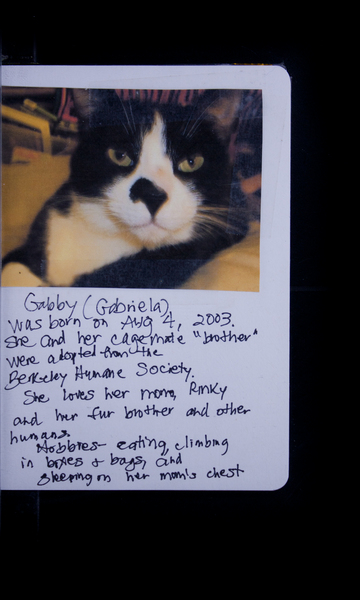 Gabby (Gabriela)
was born on Aug 4, 2003.
She and her cagemate "brother"
were adopted from the
Berkeley Humane Society.
She loves her mom, Rinky
and her fur brother and other
humans.
Hobbies- eating, climbing
in boxes + bags, and
sleeping on her mom's chest